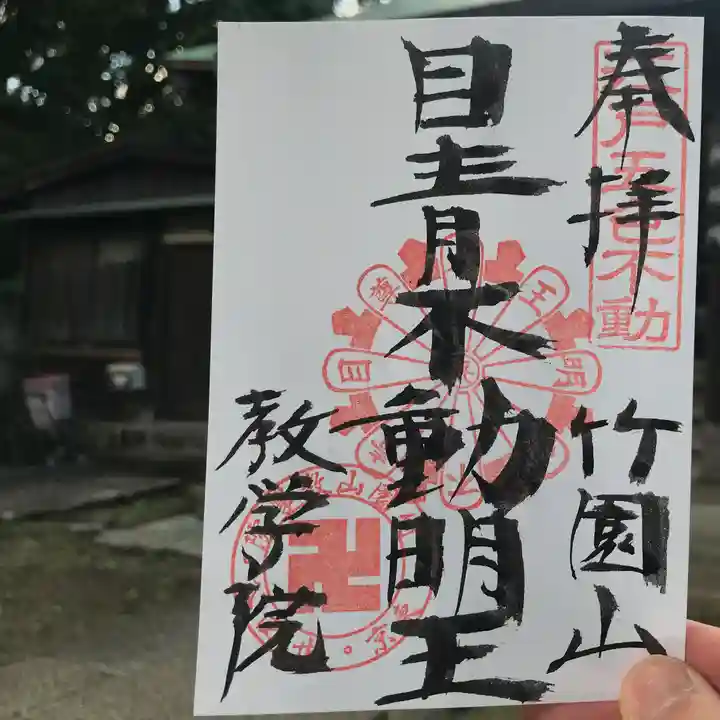 奉拝
江戸五色不動
竹園山
目青不動明王
教学院